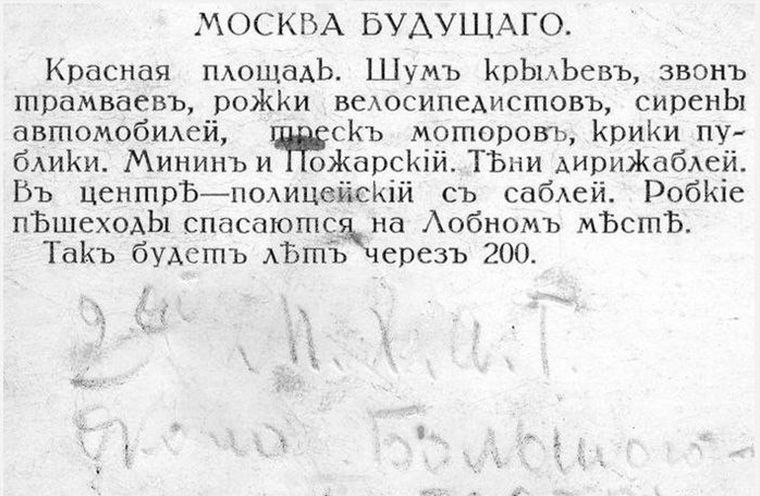 МОСКВА БУДУЩАГО.
Красная площадь. Шумъ крыльевъ, звонъ
трамваевъ, рожки велосипедистовъ, сирены
автомобилей, трескъ моторовъ, крики пу-
блики. Мининъ и Пожарскій. Тѣни дирижаблей.
Въ центрѣ—полицейскій съ саблей. Робкіе
пѣшеходы спасаются на Лобномъ мѣстѣ.
Такъ будетъ лѣтъ черезъ 200.
2ой М.Х.А.Т.
Большого